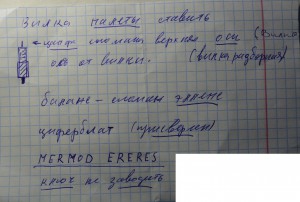 Вилка палеты ставить
← цапфа сломана верхняя оси (Вилки
 от вилки. (вилка разборная)
баланс - сломан
циферблат (присверлен)
MERMOD FRERES
ключ не заводить